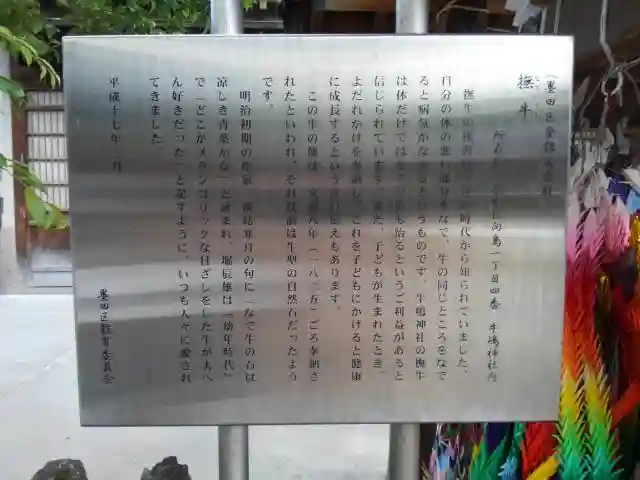 墨田区登録文化財
撫牛
所在　墨田区向島一丁目四番　牛嶋神社内
撫牛の風習は、江戸時代から知られていました。
自分の体の悪い部分をなで、牛の同じところをなで
ると病気がなおるというものです。牛嶋神社の撫牛
は体だけではなく、心も治るというご利益があると
信じられています。また、子どもが生まれたとき、
よだれかけを奉納し、これを子どもにかけると健康
に成長するという言い伝えもあります。
この牛の像は、文政八年（一八二五）ごろ奉納さ
れたといわれ、それ以前は牛型の自然石だったよう
です。
明治初期の作家　淡島寒月の句に「なで牛の石は
涼しき青葉かな」と詠まれ、堀辰雄は「幼年時代」
で「どこかメランコリックな目ざしをした牛が大へ
ん好きだった」と記すように、いつも人々に愛され
てきました
平成十七年　月
墨田区教育委員会